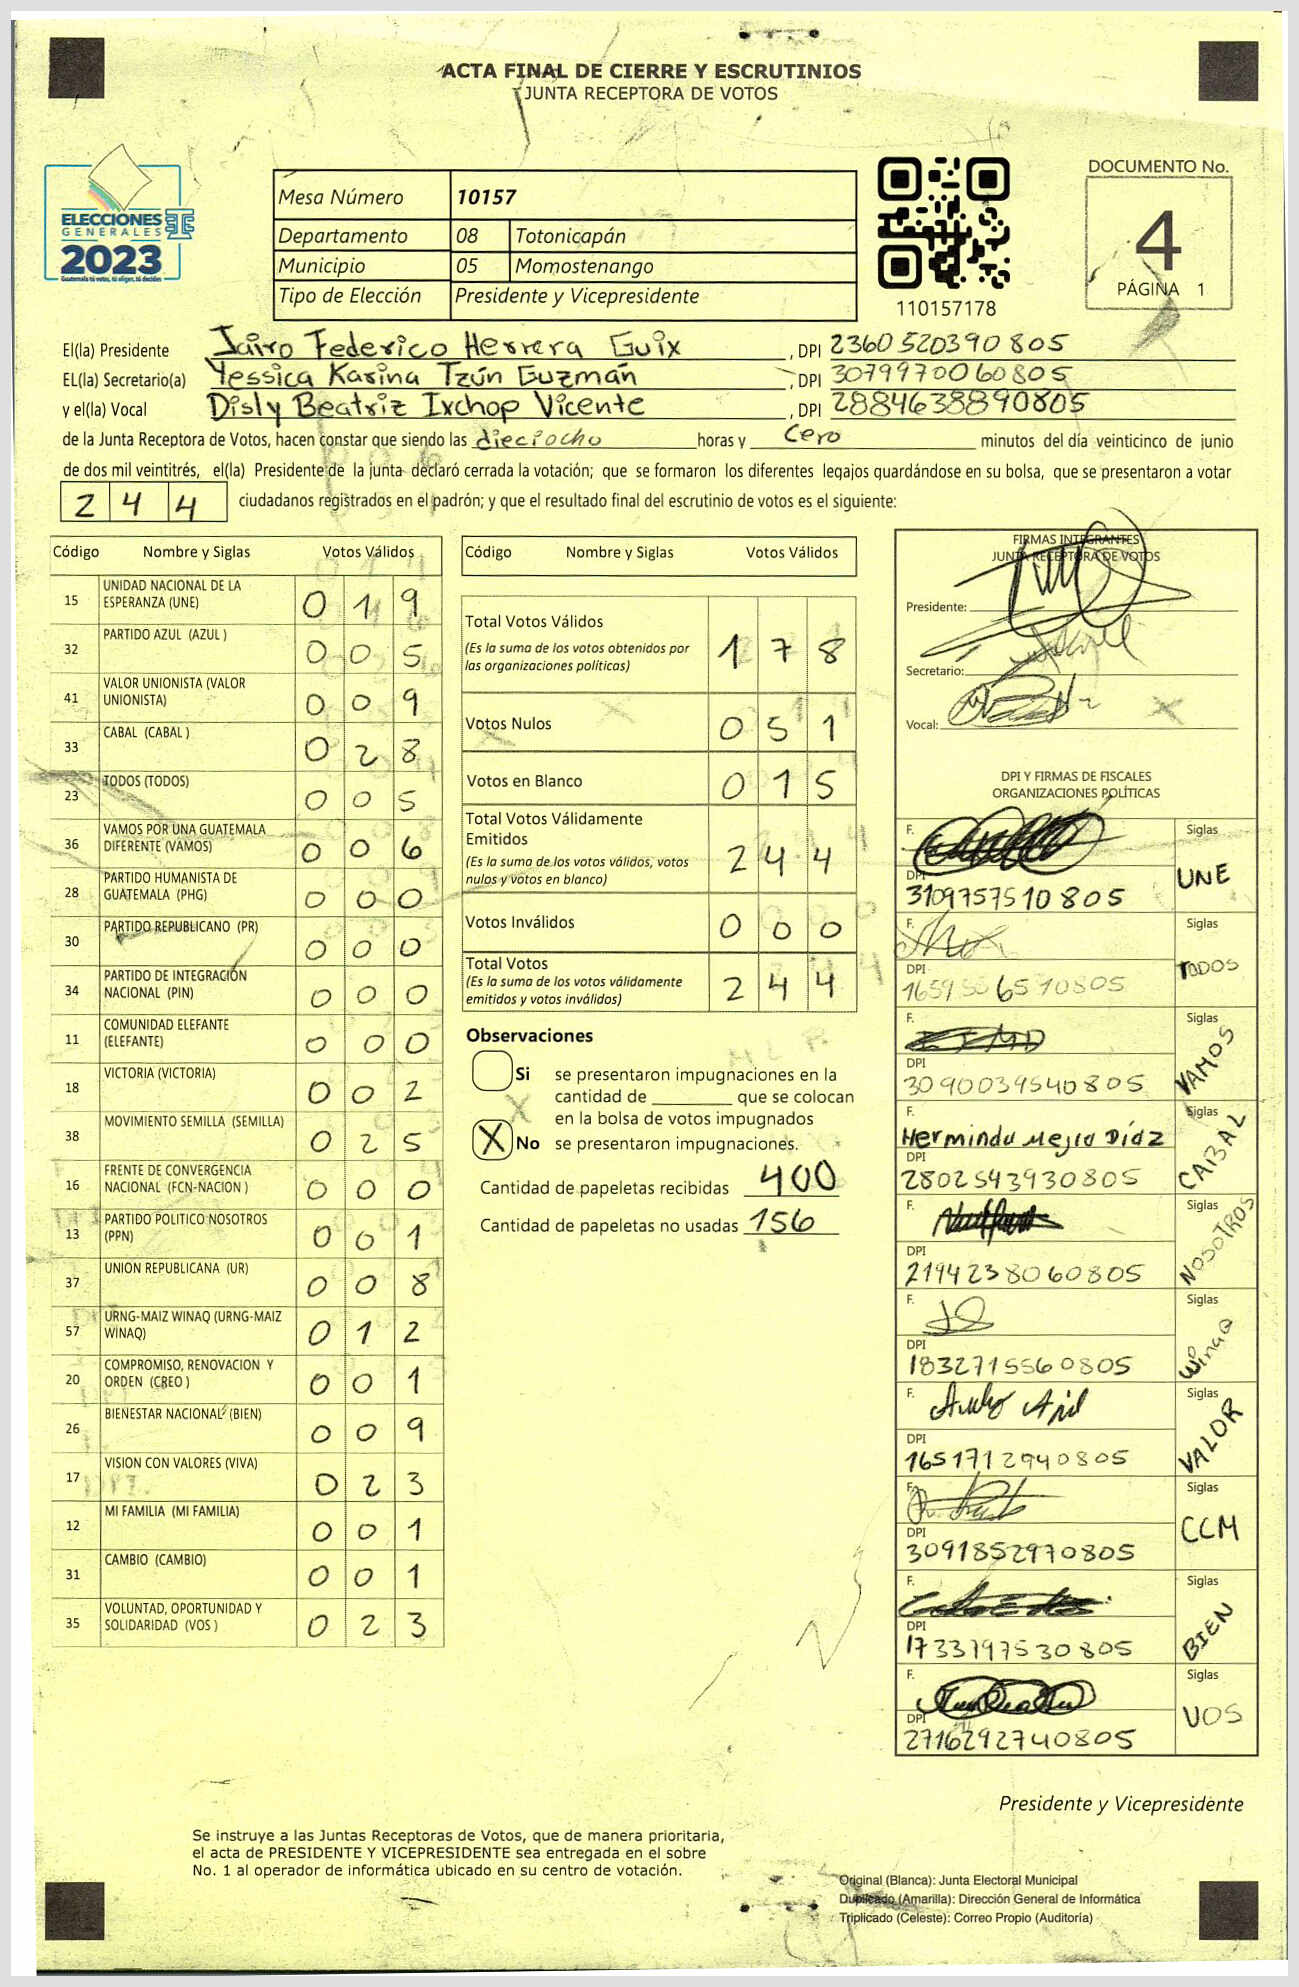 ACTA FINAL DE CIERRE Y ESCRUTINIOS
JUNTA RECEPTORA DE VOTOS
ELECCIONES
GENERALES
2023
Guatemala tú votas, tú eliges, tú decides
Mesa Número 10157
Departamento 08 Totonicapán
Municipio 05 Momostenango
Tipo de Elección Presidente y Vicepresidente
110157178
DOCUMENTO No.
4
PÁGINA 1
El(la) Presidente Jairo Federico Herrera Guix , DPI 2360520390805
EL(la) Secretario(a) Yessica Karina Tzún Guzmán , DPI 3079970060805
y el(la) Vocal Disly Beatriz Ixchop Vicente , DPI 2884638890805
de la Junta Receptora de Votos, hacen constar que siendo las dieciocho horas y cero minutos del día veinticinco de junio
de dos mil veintitrés, el(la) Presidente de la junta declaró cerrada la votación; que se formaron los diferentes legajos guardándose en su bolsa, que se presentaron a votar
244 ciudadanos registrados en el padrón; y que el resultado final del escrutinio de votos es el siguiente:
Código Nombre y Siglas Votos Válidos
15 UNIDAD NACIONAL DE LA ESPERANZA (UNE) 019
32 PARTIDO AZUL (AZUL ) 005
41 VALOR UNIONISTA (VALOR UNIONISTA) 009
33 CABAL (CABAL ) 028
23 TODOS (TODOS) 005
36 VAMOS POR UNA GUATEMALA DIFERENTE (VAMOS) 006
28 PARTIDO HUMANISTA DE GUATEMALA (PHG) 000
30 PARTIDO REPUBLICANO (PR) 000
34 PARTIDO DE INTEGRACIÓN NACIONAL (PIN) 000
11 COMUNIDAD ELEFANTE (ELEFANTE) 000
18 VICTORIA (VICTORIA) 002
38 MOVIMIENTO SEMILLA (SEMILLA) 025
16 FRENTE DE CONVERGENCIA NACIONAL (FCN-NACION ) 000
13 PARTIDO POLITICO NOSOTROS (PPN) 001
37 UNION REPUBLICANA (UR) 008
57 URNG-MAIZ WINAQ (URNG-MAIZ WINAQ) 012
20 COMPROMISO, RENOVACION Y ORDEN (CREO ) 001
26 BIENESTAR NACIONAL (BIEN) 009
17 VISION CON VALORES (VIVA) 023
12 MI FAMILIA (MI FAMILIA) 001
31 CAMBIO (CAMBIO) 001
35 VOLUNTAD, OPORTUNIDAD Y SOLIDARIDAD (VOS ) 023
Código Nombre y Siglas Votos Válidos
Total Votos Válidos 178
(Es la suma de los votos obtenidos por
las organizaciones políticas)
Votos Nulos 051
Votos en Blanco 015
Total Votos Válidamente
Emitidos 244
(Es la suma de los votos válidos, votos
nulos y votos en blanco)
Votos Inválidos 000
Total Votos 244
(Es la suma de los votos válidamente
emitidos y votos inválidos)
Observaciones
Si se presentaron impugnaciones en la
cantidad de ________ que se colocan
en la bolsa de votos impugnados
X No se presentaron impugnaciones.
Cantidad de papeletas recibidas 400
Cantidad de papeletas no usadas 156
FIRMAS INTEGRANTES
JUNTA RECEPTORA DE VOTOS
Presidente:
Secretario:
Vocal:
DPI Y FIRMAS DE FISCALES
ORGANIZACIONES POLÍTICAS
F. Siglas
DPI UNE
3109757510805
F. Siglas
DPI TODOS
F. Siglas
DPI VAMOS
3090039540805
F. Siglas
Herminda Mejia Díaz
DPI CABAL
2802543930805
F. Siglas
DPI NOSOTROS
2194238060805
F. Siglas
DPI WINAQ
1832715560805
F. Siglas
DPI VALOR
1651712940805
F. Siglas
DPI CCM
3091852970805
F. Siglas
DPI BIEN
1733197530805
F. Siglas
DPI VOS
2716292740805
Presidente y Vicepresidente
Se instruye a las Juntas Receptoras de Votos, que de manera prioritaria,
el acta de PRESIDENTE Y VICEPRESIDENTE sea entregada en el sobre
No. 1 al operador de informática ubicado en su centro de votación.
Original (Blanca): Junta Electoral Municipal
Duplicado (Amarilla): Dirección General de Informática
Triplicado (Celeste): Correo Propio (Auditoría)